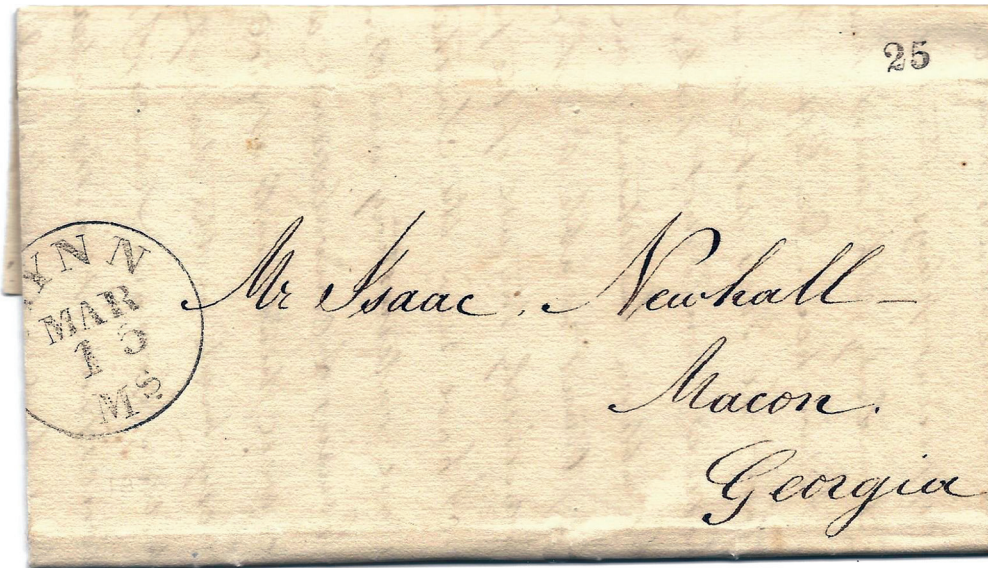 25
YNN
MAR
15
MS
Mr Isaac. Newhall –
Macon.
Georgia